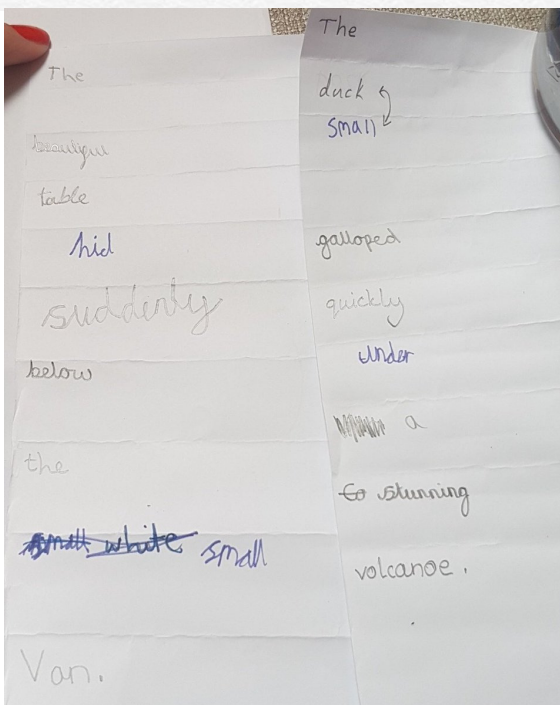 The
beautiful
table
hid
suddenly
below
the
small white small
Van.
The
duck
small
galloped
quickly
under
a
to stunning
volcanoe.